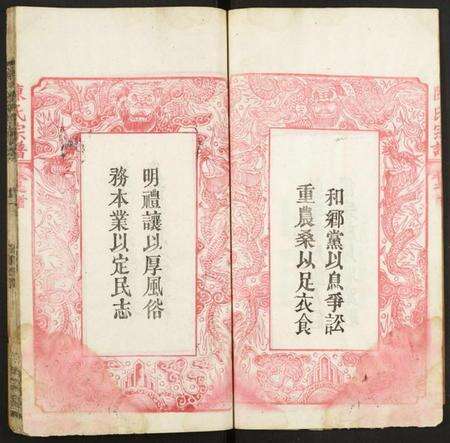 和鄉黨以息爭訟
重農桑以足衣食
明禮讓以厚風俗
務本業以定民志
陳氏宗譜